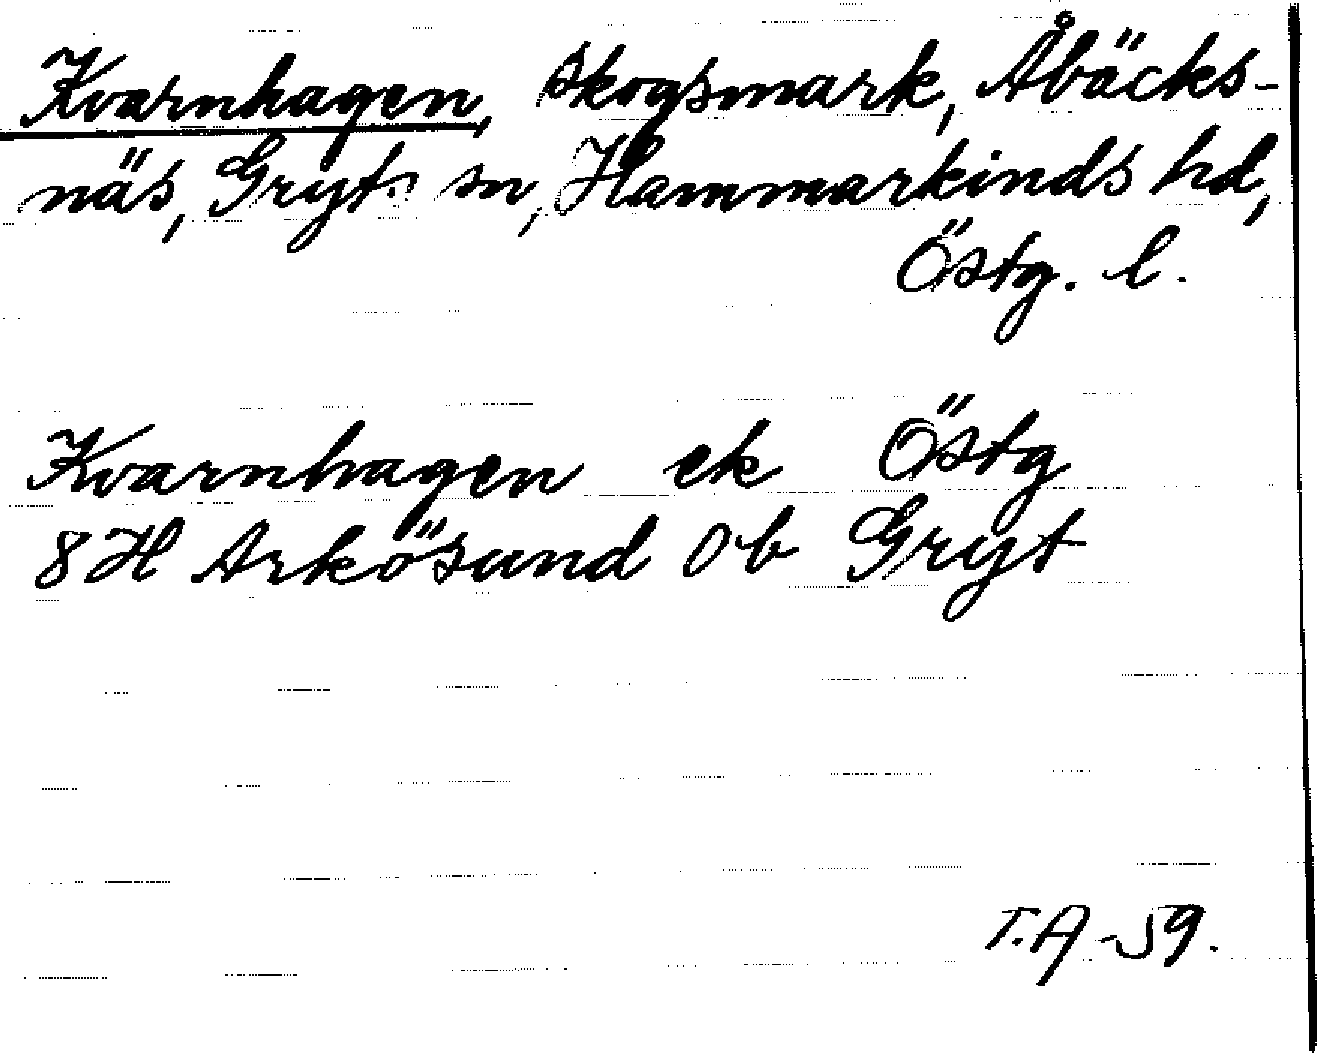 Kvarnhagen, skogsmark, Åbäcks-
näs, Gryts sn, Hammarkinds hd,
Östg. l.
Kvarnhagen ek Östg
8H Arkösund 0b Gryt
T.A-59.